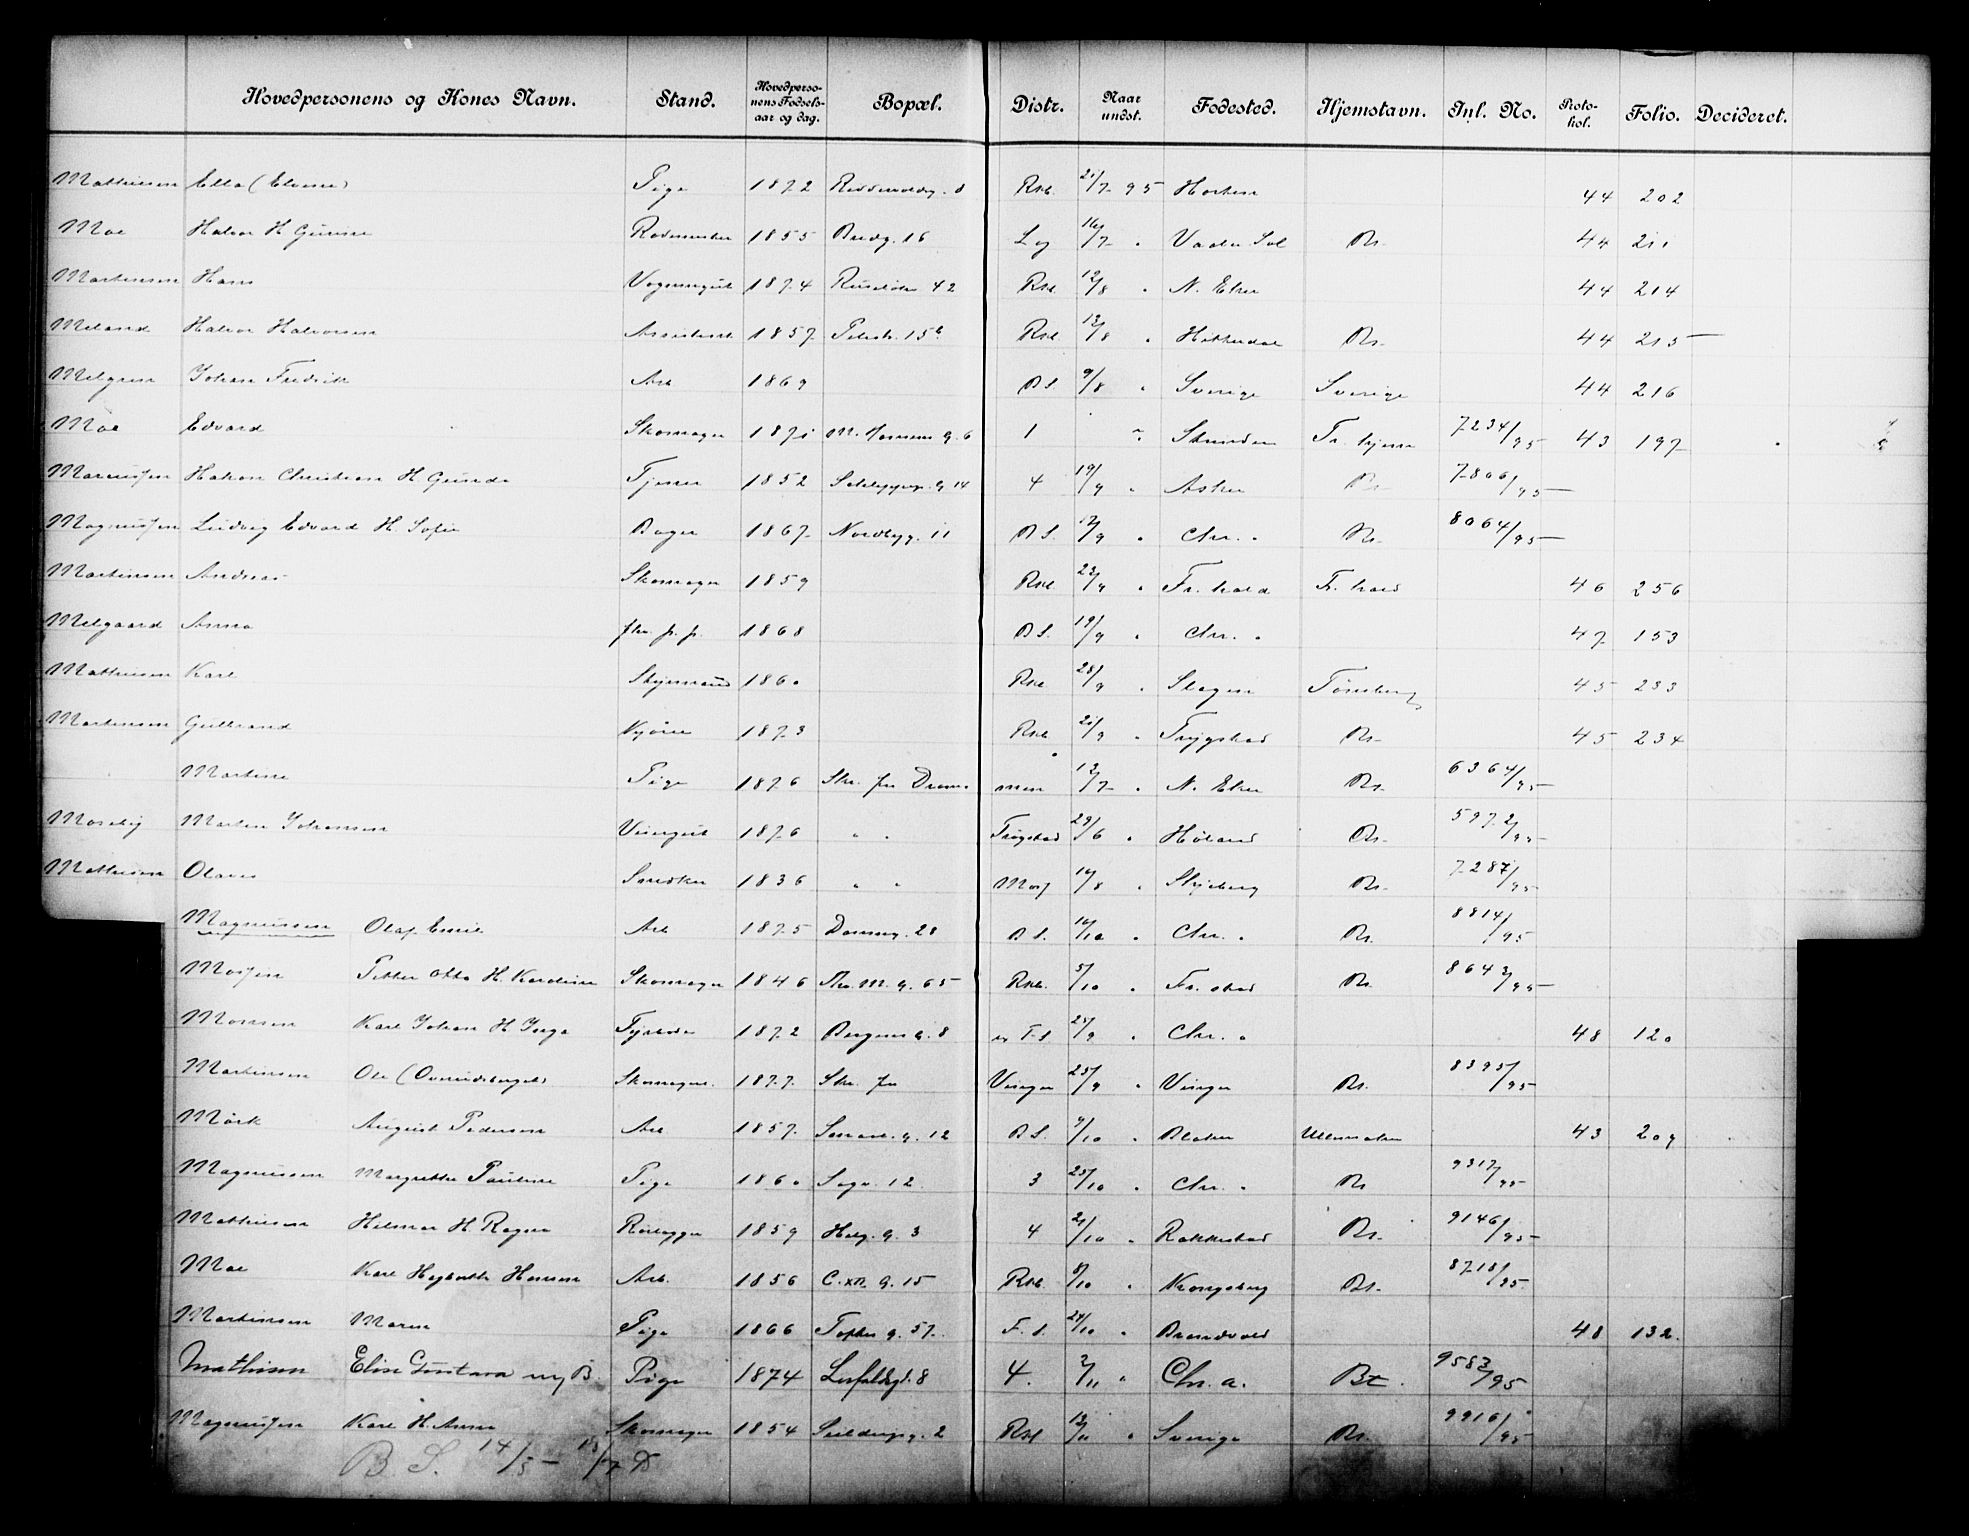 Hovedpersonens og Kones Navn. Stand. Hovedpersonens Fødselsaar og dag. Bopæl. Distr. Naar undst. Fødested. Hjemstavn. Inl. No. Protokol. Folio. Decideret.
Mathiesen Ella (Elvine) Pige 1872 Rskb. 21/7 95 Horten 44 202
Moe Halvor H Gurine Rodemester 1855 Bredg. 16 Lg 16/7 " Vaaler Sol Bt. 44 211
Martinsen Hans Vognmagersv 1874 Ruseløk 42 Rskb 12/8 " N. Eker 44 214
Meland Halvor Halvorsen Assistent 1857 Pilestr. 15b Rskb 12/8 " Hitterdal Bt. 44 215
Melgren Johan Fredrik Arb 1869 B.S. 9/8 " Sverige Sverige 44 216
Moe Edvard Skomager 1871 M. Hansens g. 6 1 " Fr. hjem 7234/95 43 197
Marcussen Hakon Christian H Gunda Tjener 1852 g 14 4 19/9 " Asker Bt 7806/95
Magnussen Ludvig Edvard H. Sofie Bager 1867 Nordbyg. 11 B S. 12/9 " Chr. a Bt. 8064/95
Martinsen Andreas Skomager 1859 Rskb. 23/9 " Fr. hald Fr. hald 46 256
Melgaard Anna fhv. p. p. 1868 B S. 19/9 " Chr. a 47 153
Mathiesen Karl Skyjemand 1860 Rskb 28/9 " Slagen Tønsberg 45 233
Martinsen Gulbrand Kjører 1873 Rskb 21/9 " Trygstad Bt. 45 234
Martine Pige 1876 Skr. fra Drammen 12/7 " N. Eker Bt. 6364/95
Moseby Martin Johansen Visergut 1876 " " Trøgstad 29/6 " Høland Bt. 5972/95
Mathiesen Olaves Snedker 1836 " " Moss 16/8 " Skjeberg Bt. 7287/95
Magnussen Olaf Emil Arb 1875 Dammg. 28 B S. 16/10 " Chr. a Bt. 8814/95
Mossin Petter Otto H. Karoline Skomager 1846 Thv. M. g. 65 Rskb. 5/10 " Fr. stad Bt. 8643/95
Monsen Karl Johan H Inga Fyrbøder 1872 Bergens g. 8 F.S 25/9 " Chr. a 48 120
Martinsen Ole (Overudsenget) Skomagers. 1877 Skr. fra Vinger 25/9 " Vinger Bt. 8395/95
Mørk August Pedersen Arb. 1857 g. 12 B S. 9/10 " Blaker Ullensaker 43 209
Magnussen Margrethe Pauline Pige 1860 Sogv. 12 3 25/10 " Chr. a Bt 9317/95
Mathiesen Hilmar H. Ragna Rørlægger 1859 Helg. g. 3 4 21/10 " Rakkestad Bt. 9146/95
Moe Karl Hansen Arb. 1856 C. XII. g. 15 Rskb. 8/10 " Kongsberg Bt. 8718/95
Martinsen Maren Pige 1866 Toftes g. 57 F.S. 24/10 " Brandvold 48 132.
Mathisen Elise Gustava Pige 1874 Lerfaldsgt. 8 4. 2/11 " Chr. a. Bt. 9583/95
Magnussen Karl H. Anna Skomager 1854 Seilduksg. 2 Rskb 12/11 " Sverige Bt. 9916/95
B. S. 14/5 - 13/7 D